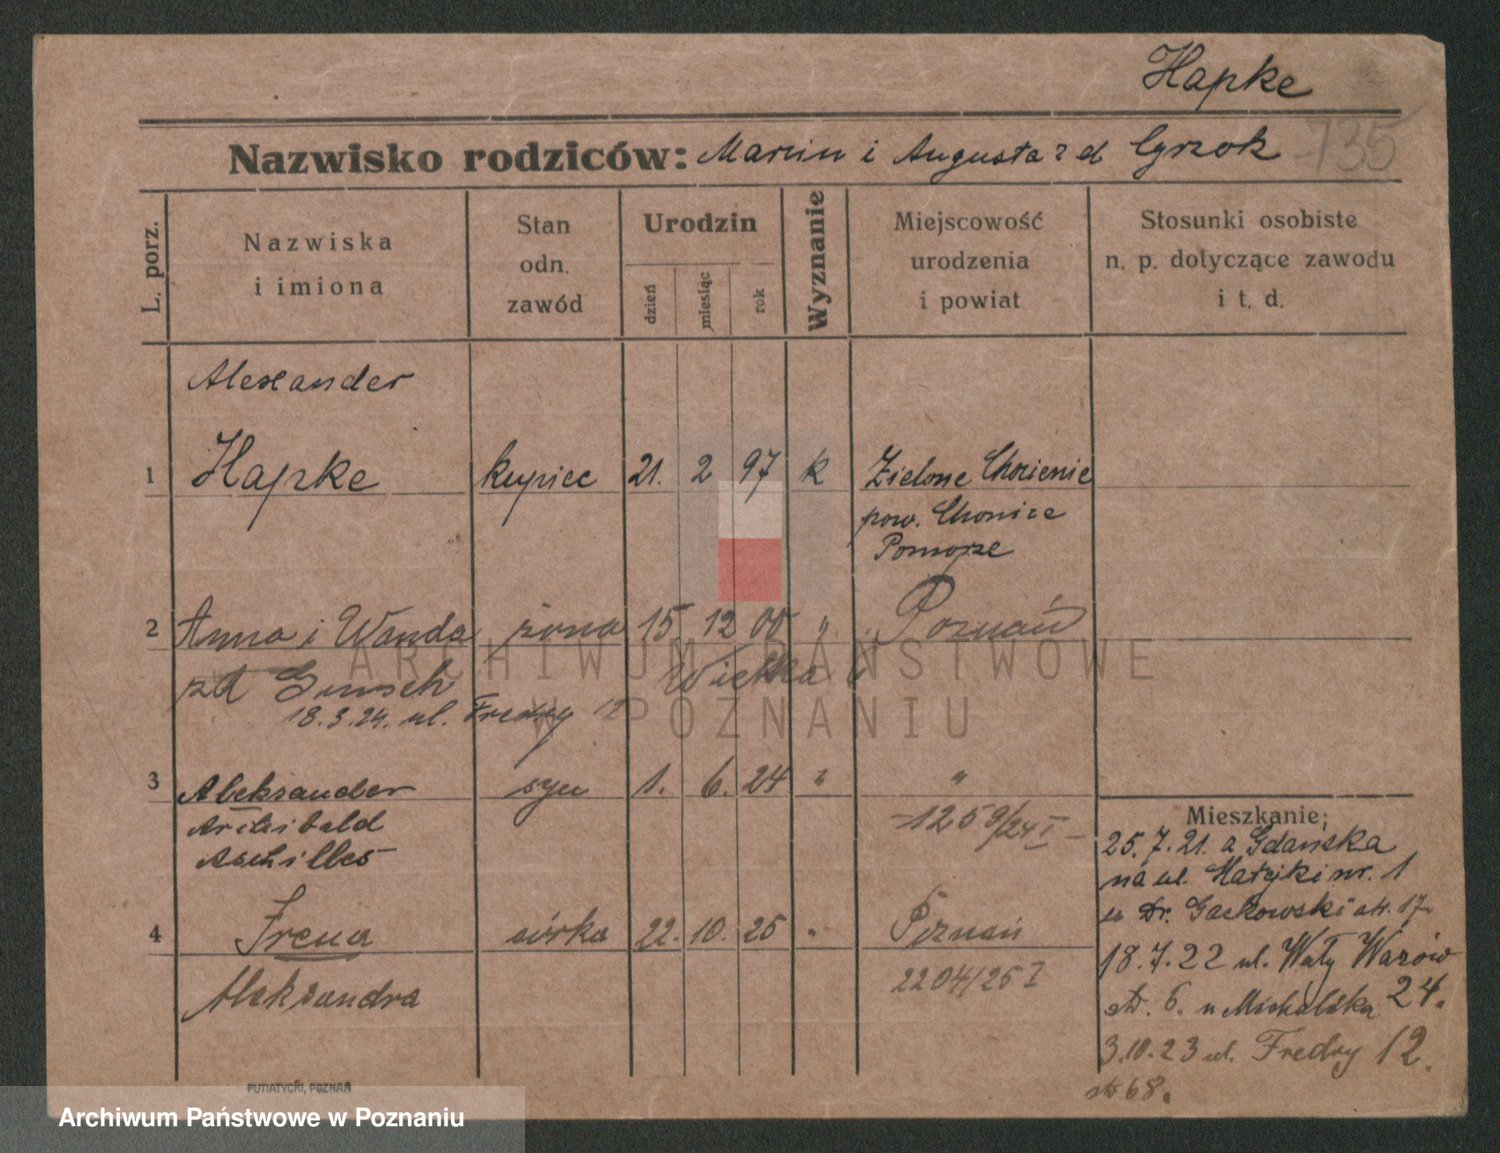 Hapke
Nazwisko rodziców: Marcin i Augusta z d Cyrzok
735
L. porz.
Nazwiska i imiona
Stan odn. zawód
Urodzin
dzień
miesiąc
rok
Wyznanie
Miejscowość urodzenia i powiat
Stosunki osobiste n. p. dotyczące zawodu i t. d.
Alexander
1 Hapke kupiec 21. 2 97 k Zielone Chocienie
pow. Chonice
Pomorze
2 Anna i Wanda żona 15 12 00 " Poznań
zd Wielka 6
18.3.24. ul. Fredry 12
3 Aleksander syn 1. 6. 24 " "
Archibald
-1259/24 I-
Achilles
4 Irena córka 22. 10. 25 " Poznań
Aleksandra
2204/25 I
Mieszkanie;
25.7.21. a Gdańska
na ul. Matejki nr. 1
u Dr. Gackowski str. 17
18.7.22 ul. Wały Wazów
str. 6. u Michalska 24.
3.10.23 ul. Fredry 12.
str 68.
PUTIATYCKI, POZNAŃ
ARCHIWUM PAŃSTWOWE
W POZNANIU
Archiwum Państwowe w Poznaniu